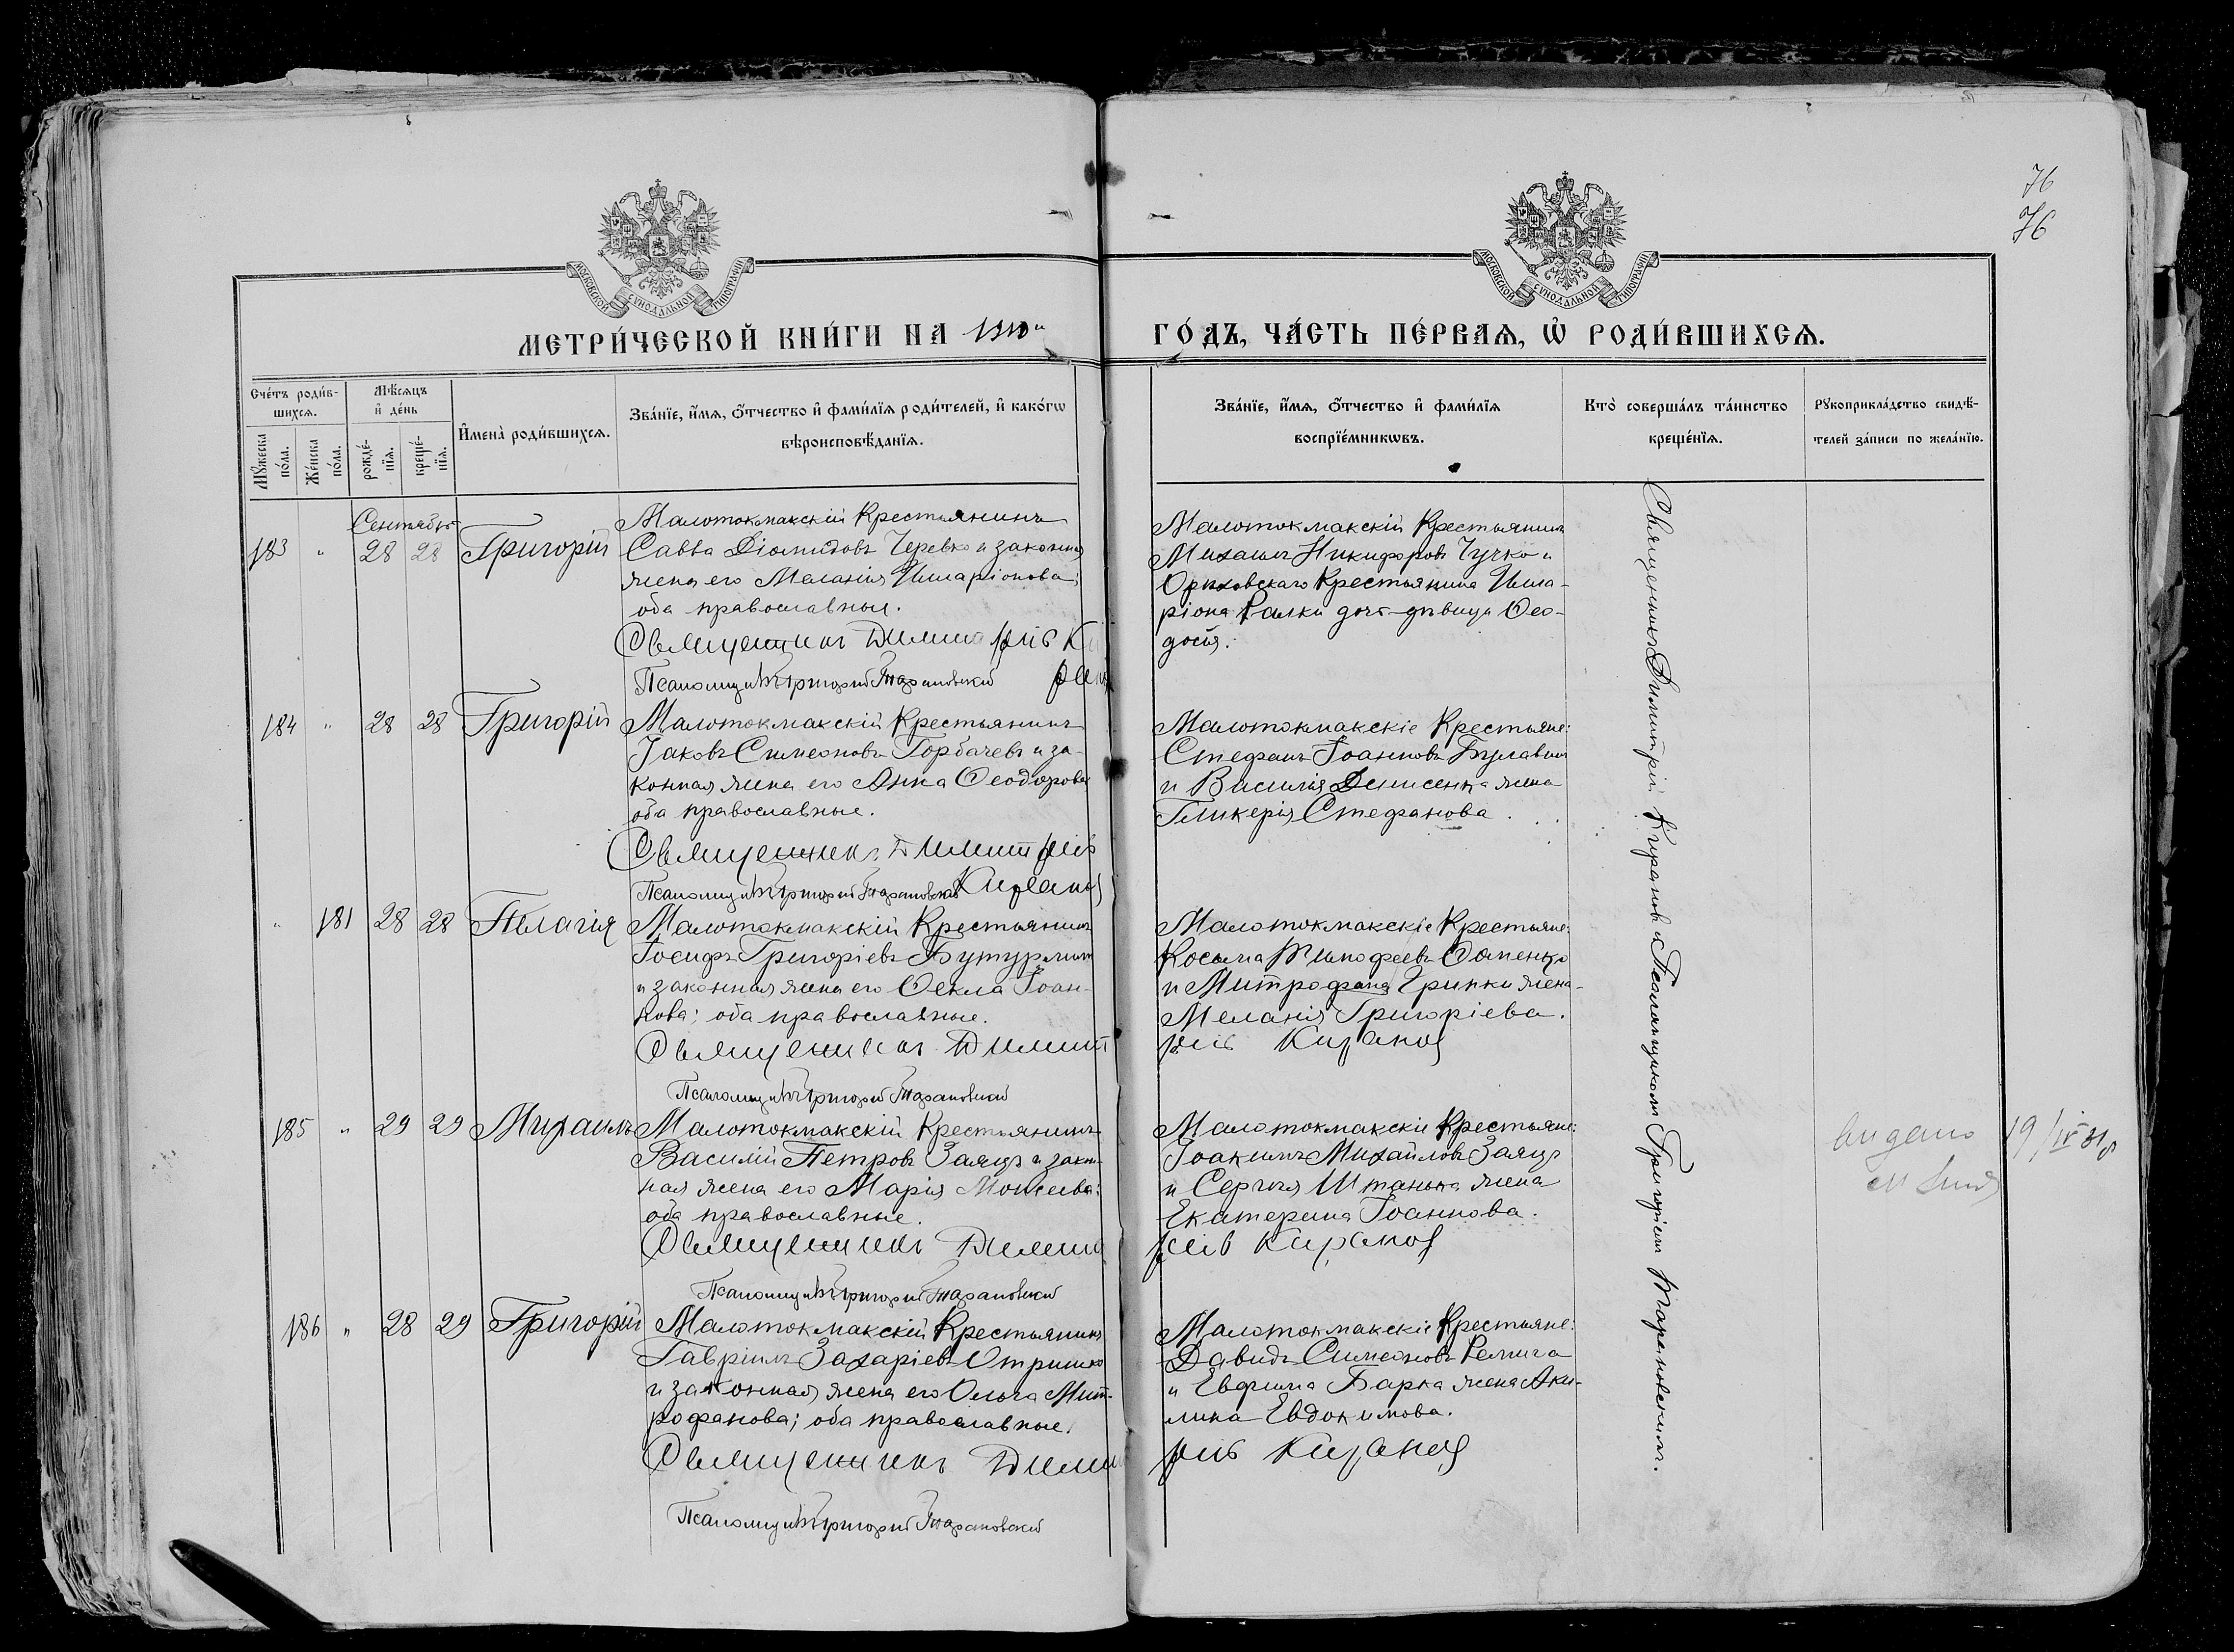 76
76
МОСКОВСКОЙ СѴНОДАЛЬНОЙ ТИПОГРАФІИ
МОСКОВСКОЙ СѴНОДАЛЬНОЙ ТИПОГРАФІИ
МЕТРИ́ЧЕСКОЙ КНИ́ГИ НА 1910 й ГО́ДЪ, ЧА́СТЬ ПЕ́РВАЯ, Ѡ РОДИ́ВШИХСЯ.
Сче́тъ роди́в-
шихся.
Мꙋ́жеска
по́ла.
Же́нска
по́ла.
Мѣ́сяцъ
и҆ де́нь
рожде́-
нїя.
креще́-
нїя.
И҆мена̀ роди́вшихся.
Зва́нїе, и҆́мя, ѻ҆́тчество и҆ фами́лїя роди́телей, и҆ како́гѡ
вѣроисповѣ́данїя.
Зва́нїе, и҆́мя, ѻ҆́тчество и҆ фами́лїя
воспрїе́мникѡвъ.
Кто̀ соверша́лъ та́инство
креще́нїя.
Рꙋкоприкла́дство свидѣ́-
телей за́писи по жела́нїю.
Сентябрь
183 " 28 28 Григорій
Малотокмакскій Крестьянинъ
Савва Діомидовъ Черевко и законная
жена его Меланія Иларіонова;
оба православные.
Священникъ Димитрій Ки
ран
Псаломщикъ Григорій Тарановскій
Малотокмакскій Крестьянинъ
Михаилъ Никифоровъ Чучко и
Ореховскаго Крестьянина Ила-
ріона Галки дочь-девица Ѳео-
досія.
184 " 28 28 Григорій
Малотокмакскій Крестьянинъ
Іаковъ Симеоновъ Горбачевъ и за-
конная жена его Анна Ѳеодорова
оба православные.
Священникъ Димитрій
Киранов
Псаломщикъ Григорій Тарановскій
Малотокмакскіе Крестьяне:
Стефанъ Іоанновъ Булавин
и Василія Денисенка жена
Гликерія Стефанова.
" 181 28 28 Пелагія
Малотокмакскій Крестьянинъ
Іосифъ Григоріевъ Бутурлин
и законная жена его Ѳекла Іоан-
нова; оба православные.
Священникъ Димит рій Киранов
Псаломщикъ Григорій Тарановскій
Малотокмакскіе Крестьяне:
Косьма Тимофеевъ Ѳоменко
и Митрофана Грипки жена
Меланія Григоріева.
185 " 29 29 Михаилъ
Малотокмакскій Крестьянинъ
Василій Петровъ Заяцъ и закон-
ная жена его Марія Моисеева;
оба православные.
Священникъ Димит рій Киранов
Псаломщикъ Григорій Тарановскій
Малотокмакскіе Крестьяне:
Іоакимъ Михайловъ Заяцъ
и Сергія Штанька жена
Екатерина Іоаннова.
видано 19/IV 31 р
186 " 28 29 Григорій
Малотокмакскій Крестьянинъ
Гавріилъ Захаріевъ Отришко
и законная жена его Ольга Мит-
рофанова; оба православные.
Священникъ Дими рій Киранов
Псаломщикъ Григорій Тарановскій
Малотокмакскіе Крестьяне:
Давидъ Симеоновъ
и Евфима Барка жена Аки-
лина Евдокимова.
Священникъ Димитрій Кирановъ съ Псаломщикомъ Григоріемъ Тарановскимъ.